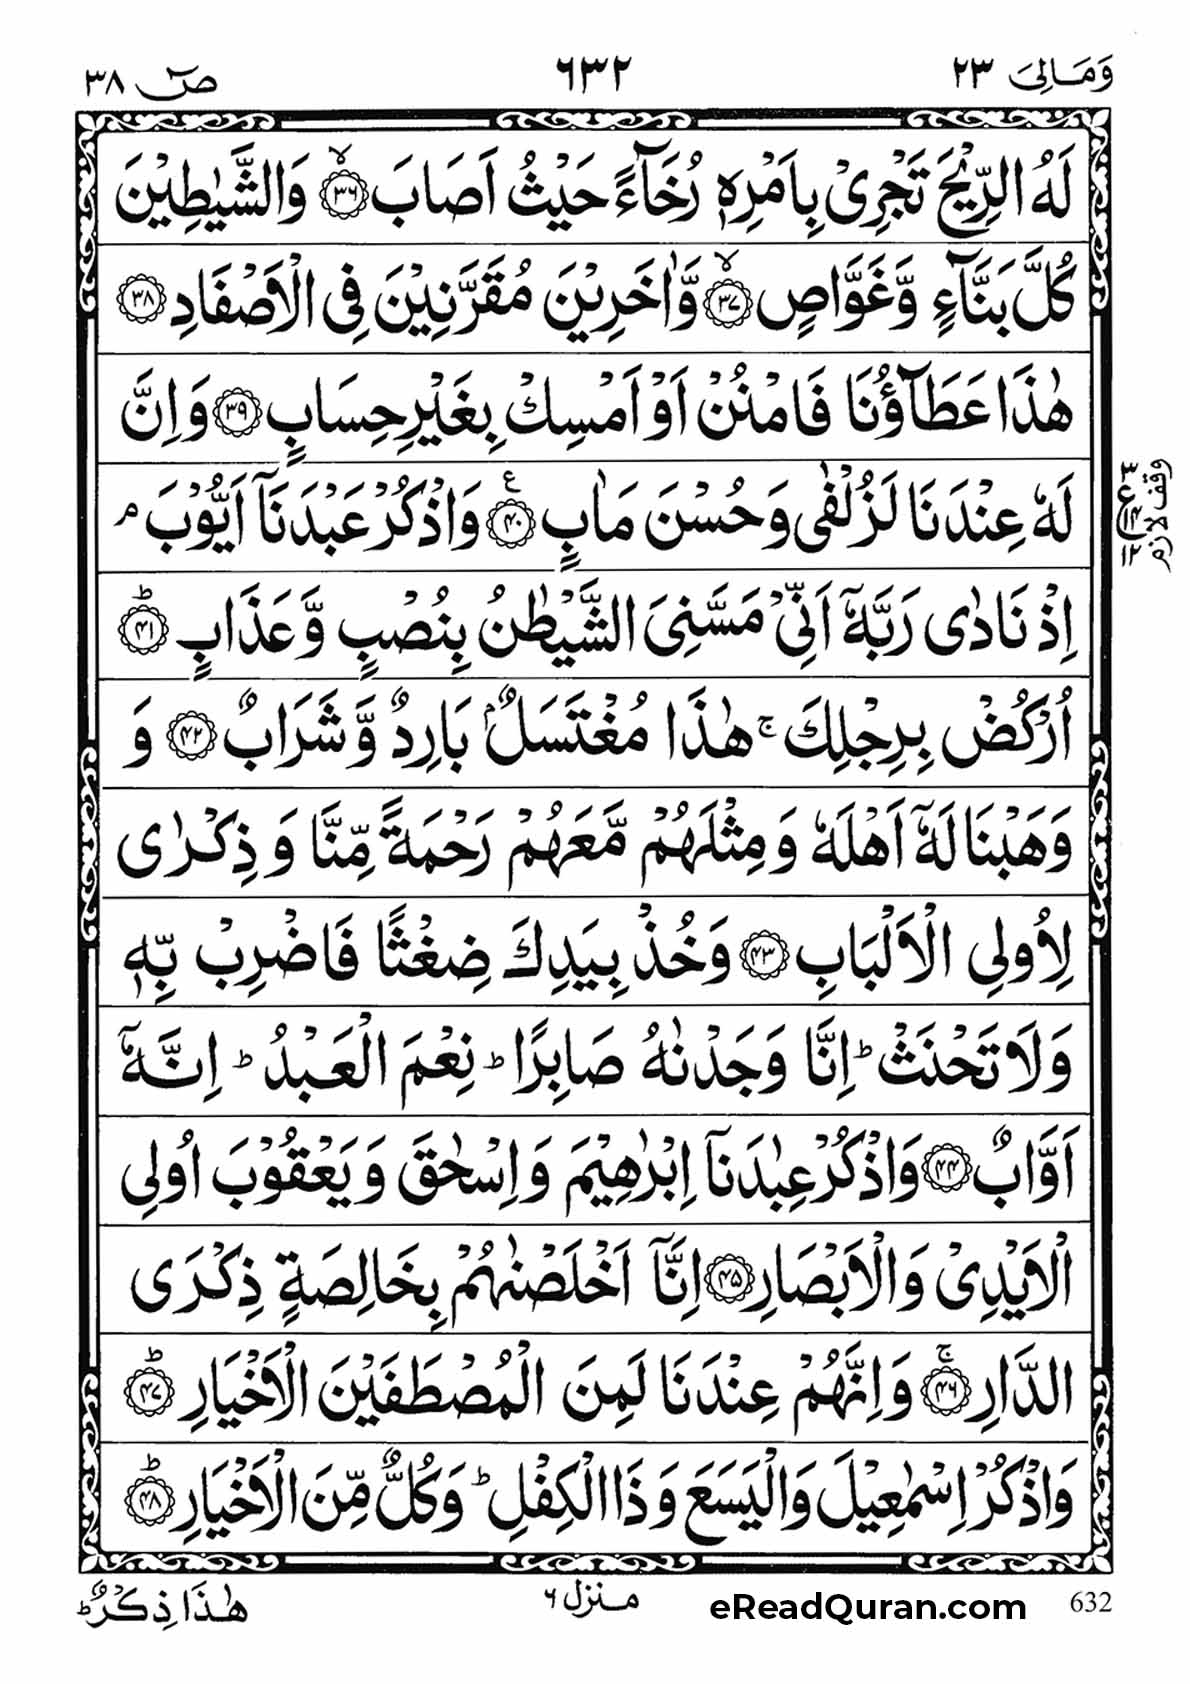 وَمَالِىَ ٢٣
٦٣٢
صٓ ٣٨
لَهُ الرِّيْحَ تَجْرِىْ بِاَمْرِهٖ رُخَآءً حَيْثُ اَصَابَ ۙ‏﴿۳۶﴾ وَالشَّيٰطِيْنَ
كُلَّ بَنَّآءٍ وَّغَوَّاصٍ ۙ‏﴿۳۷﴾ وَّاٰخَرِيْنَ مُقَرَّنِيْنَ فِى الْاَصْفَادِ‏﴿۳۸﴾
هٰذَا عَطَآؤُنَا فَامْنُنْ اَوْ اَمْسِكْ بِغَيْرِ حِسَابٍ‏﴿۳۹﴾ وَاِنَّ
لَهٗ عِنْدَنَا لَزُلْفٰى وَحُسْنَ مَاٰبٍ ع‏﴿۴۰﴾ وَاذْكُرْ عَبْدَنَاۤ اَيُّوْبَ ۘ
وقف لازم
٣
ع
١٤
١٢
اِذْ نَادٰى رَبَّهٗۤ اَنِّىْ مَسَّنِىَ الشَّيْطٰنُ بِنُصْبٍ وَّعَذَابٍ ؕ‏﴿۴۱﴾
اُرْكُضْ بِرِجْلِكَ ۚ هٰذَا مُغْتَسَلٌۢ بَارِدٌ وَّشَرَابٌ‏﴿۴۲﴾ وَ
وَهَبْنَا لَهٗۤ اَهْلَهٗ وَمِثْلَهُمْ مَّعَهُمْ رَحْمَةً مِّنَّا وَذِكْرٰى
لِاُولِى الْاَلْبَابِ‏﴿۴۳﴾ وَخُذْ بِيَدِكَ ضِغْثًا فَاضْرِبْ بِّهٖ
وَلَا تَحْنَثْ ؕ اِنَّا وَجَدْنٰهُ صَابِرًا ؕ نِعْمَ الْعَبْدُ ؕ اِنَّهٗۤ
اَوَّابٌ‏﴿۴۴﴾ وَاذْكُرْ عِبٰدَنَاۤ اِبْرٰهِيْمَ وَاِسْحٰقَ وَيَعْقُوْبَ اُولِى
الْاَيْدِىْ وَالْاَبْصَارِ‏﴿۴۵﴾ اِنَّاۤ اَخْلَصْنٰهُمْ بِخَالِصَةٍ ذِكْرَى
الدَّارِ ۚ‏﴿۴۶﴾ وَاِنَّهُمْ عِنْدَنَا لَمِنَ الْمُصْطَفَيْنَ الْاَخْيَارِ ؕ‏﴿۴۷﴾
وَاذْكُرْ اِسْمٰعِيْلَ وَالْيَسَعَ وَذَا الْكِفْلِ ؕ وَكُلٌّ مِّنَ الْاَخْيَارِ ؕ‏﴿۴۸﴾
هٰذَا ذِكْرٌ ؕ
منزل ٦
eReadQuran.com
632